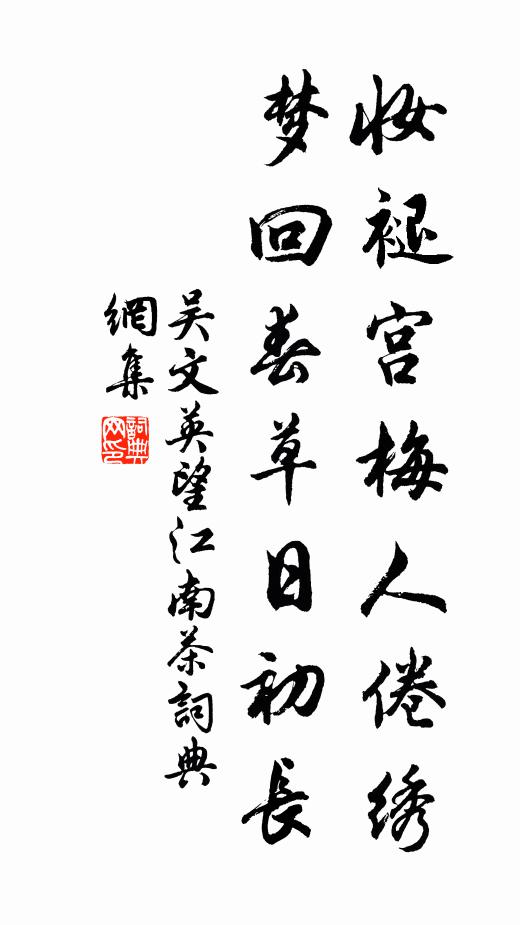 妆褪宫梅人倦绣
梦回春草日初長
吴文英望江南茶詞典
網集
詞典
网印